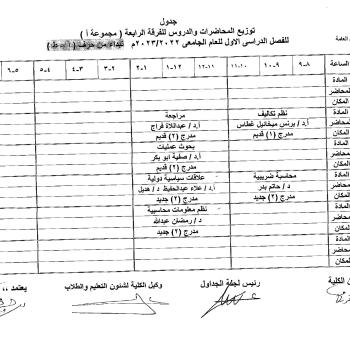 جدول
توزيع المحاضرات والدروس للفرقة الرابعة ( مجموعة أ )
للفصل الدراسى الاول للعام الجامعى ٢٠٢٣/٢٠٢٢م
العامة
الساعة ٨-٩ ٩-١٠ ١٠-١١ ١١-١٢ ١٢-١ ١-٢ ٢-٣ ٣-٤ ٤-٥ ٥-٦
المادة
المحاضر
المكان
المادة نظم تكاليف مراجعة
المحاضر أ.د / برنس ميخائيل غطاس أ.د / عبداللاة فراج
المكان مدرج (١) قديم مدرج (٢) قديم
المادة بحوث عمليات
محاضر أ.د / صفية ابو بكر
المكان مدرج (٢) قديم
المادة محاسبة ضريبية علاقات سياسية دولية
محاضر د / حاتم بدر أ.د / علاء عبدالحفيظ د / هديل
المكان مدرج (٢) جديد مدرج (٢) جديد
المادة نظم معلومات محاسبية
محاضر د / رمضان عبدالله
المكان مدرج (٢) جديد
المادة
محاضر
المكان
الكلية رئيس لجنة الجداول وكيل الكلية لشئون التعليم والطلاب يعتمد ،،